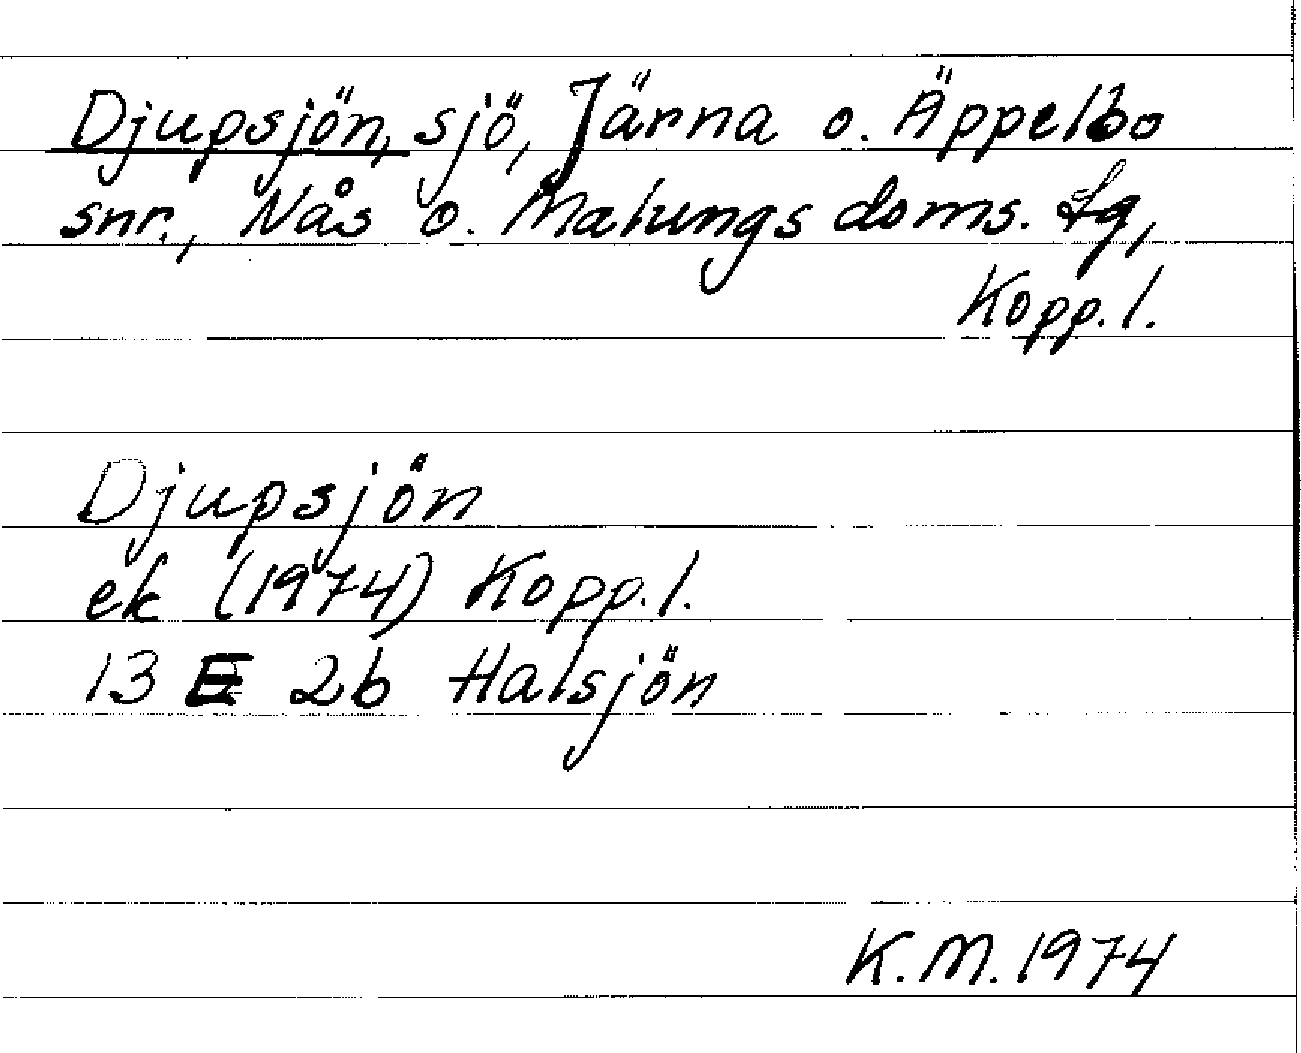 Djupsjön, sjö, Järna o. Äppelbo
snr., Nås o. Malungs doms. tg,
Kopp. l.
Djupsjön
ek (1974) Kopp. l.
13 E 2b Halsjön
K. M. 1974